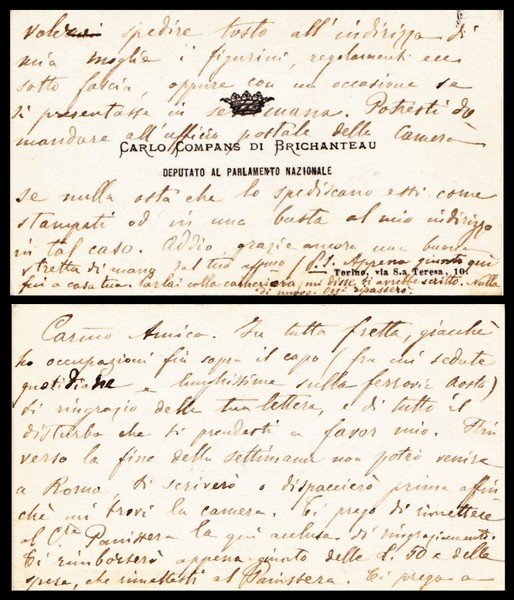 voler spedire tosto all'indirizzo di
mia moglie i figurini, regolamenti ecc
sotto fascia, oppure con un occasione se
si presentasse in settimana. Potresti do
mandare all'afficio postale della Camera
CARLO COMPANS DI BRICHANTEAU
DEPUTATO AL PARLAMENTO NAZIONALE
se nulla osta che lo spediscano essi come
stampati od in una busta al mio indirizzo
in tal caso. Addio, grazie ancora una buona
stretta di mano dal tuo affmo (P.S. Appena giunto qui
Torino, via S.a Teresa, 10.
fui a casa tua. Parlai colla cameriera, mi disse ti avrebbe scritto. Nulla
di nuovo. Oggi ripasserò.
Carmo Amico. In tutta fretta, giacchè
ho occupazioni fin sopra il capo (fra cui sedute
quotidiane e lunghissime sulla ferrovia Aosta)
ti ringrazio della tua lettera, e di tutto il
disturbo che ti prendesti a favor mio. Fin
verso la fine della settimana non potrò venire
a Roma ti scriverò o dispaccierò prima affin
chè mi trovi la camera. Ti prego di rimettere
al Cte Panissera la qui acclusa di ringraziamento.
Ti rimborserò appena giunto delle L. 50 e della
spesa, che rimettesti al Panissera. Ti prego a